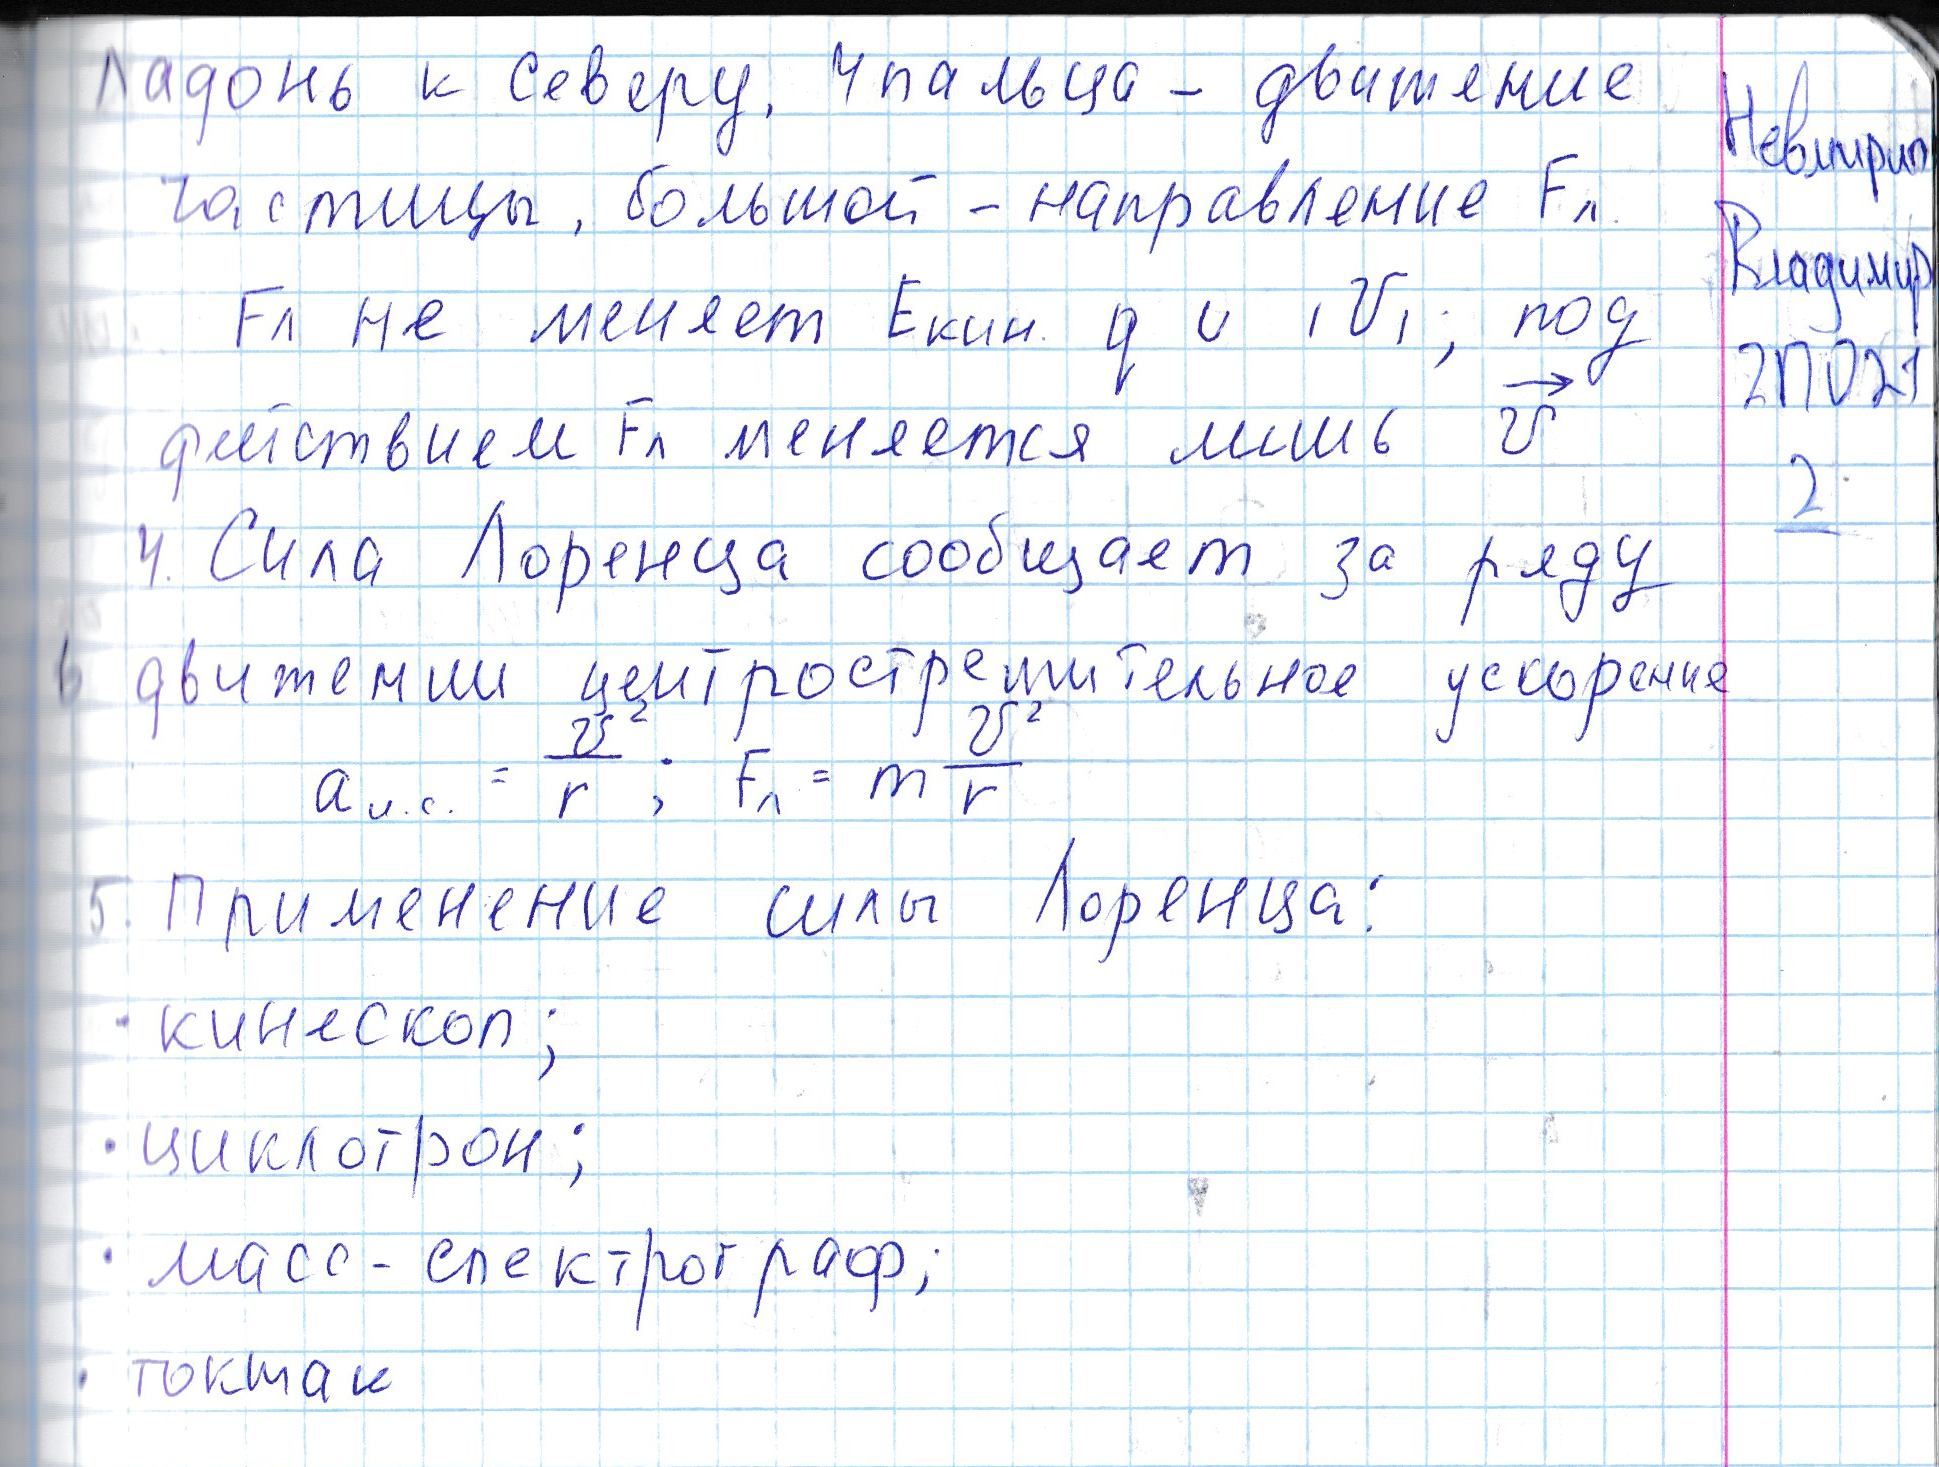 Ладонь к северу, 4 пальца - движение
частицы, большой - направление Fл.
Fл не меняет Eкин. q и |V|; под
действием Fл меняется лишь v⃗
4. Сила Лоренца сообщает за ряду
в движении центростремительное ускорение
aц.с. = v²/r ; Fл = m v²/r
5. Применение силы Лоренца:
· кинескоп;
· циклотрон;
· масс-спектрограф;
· токмак
Владимир
2П021
2